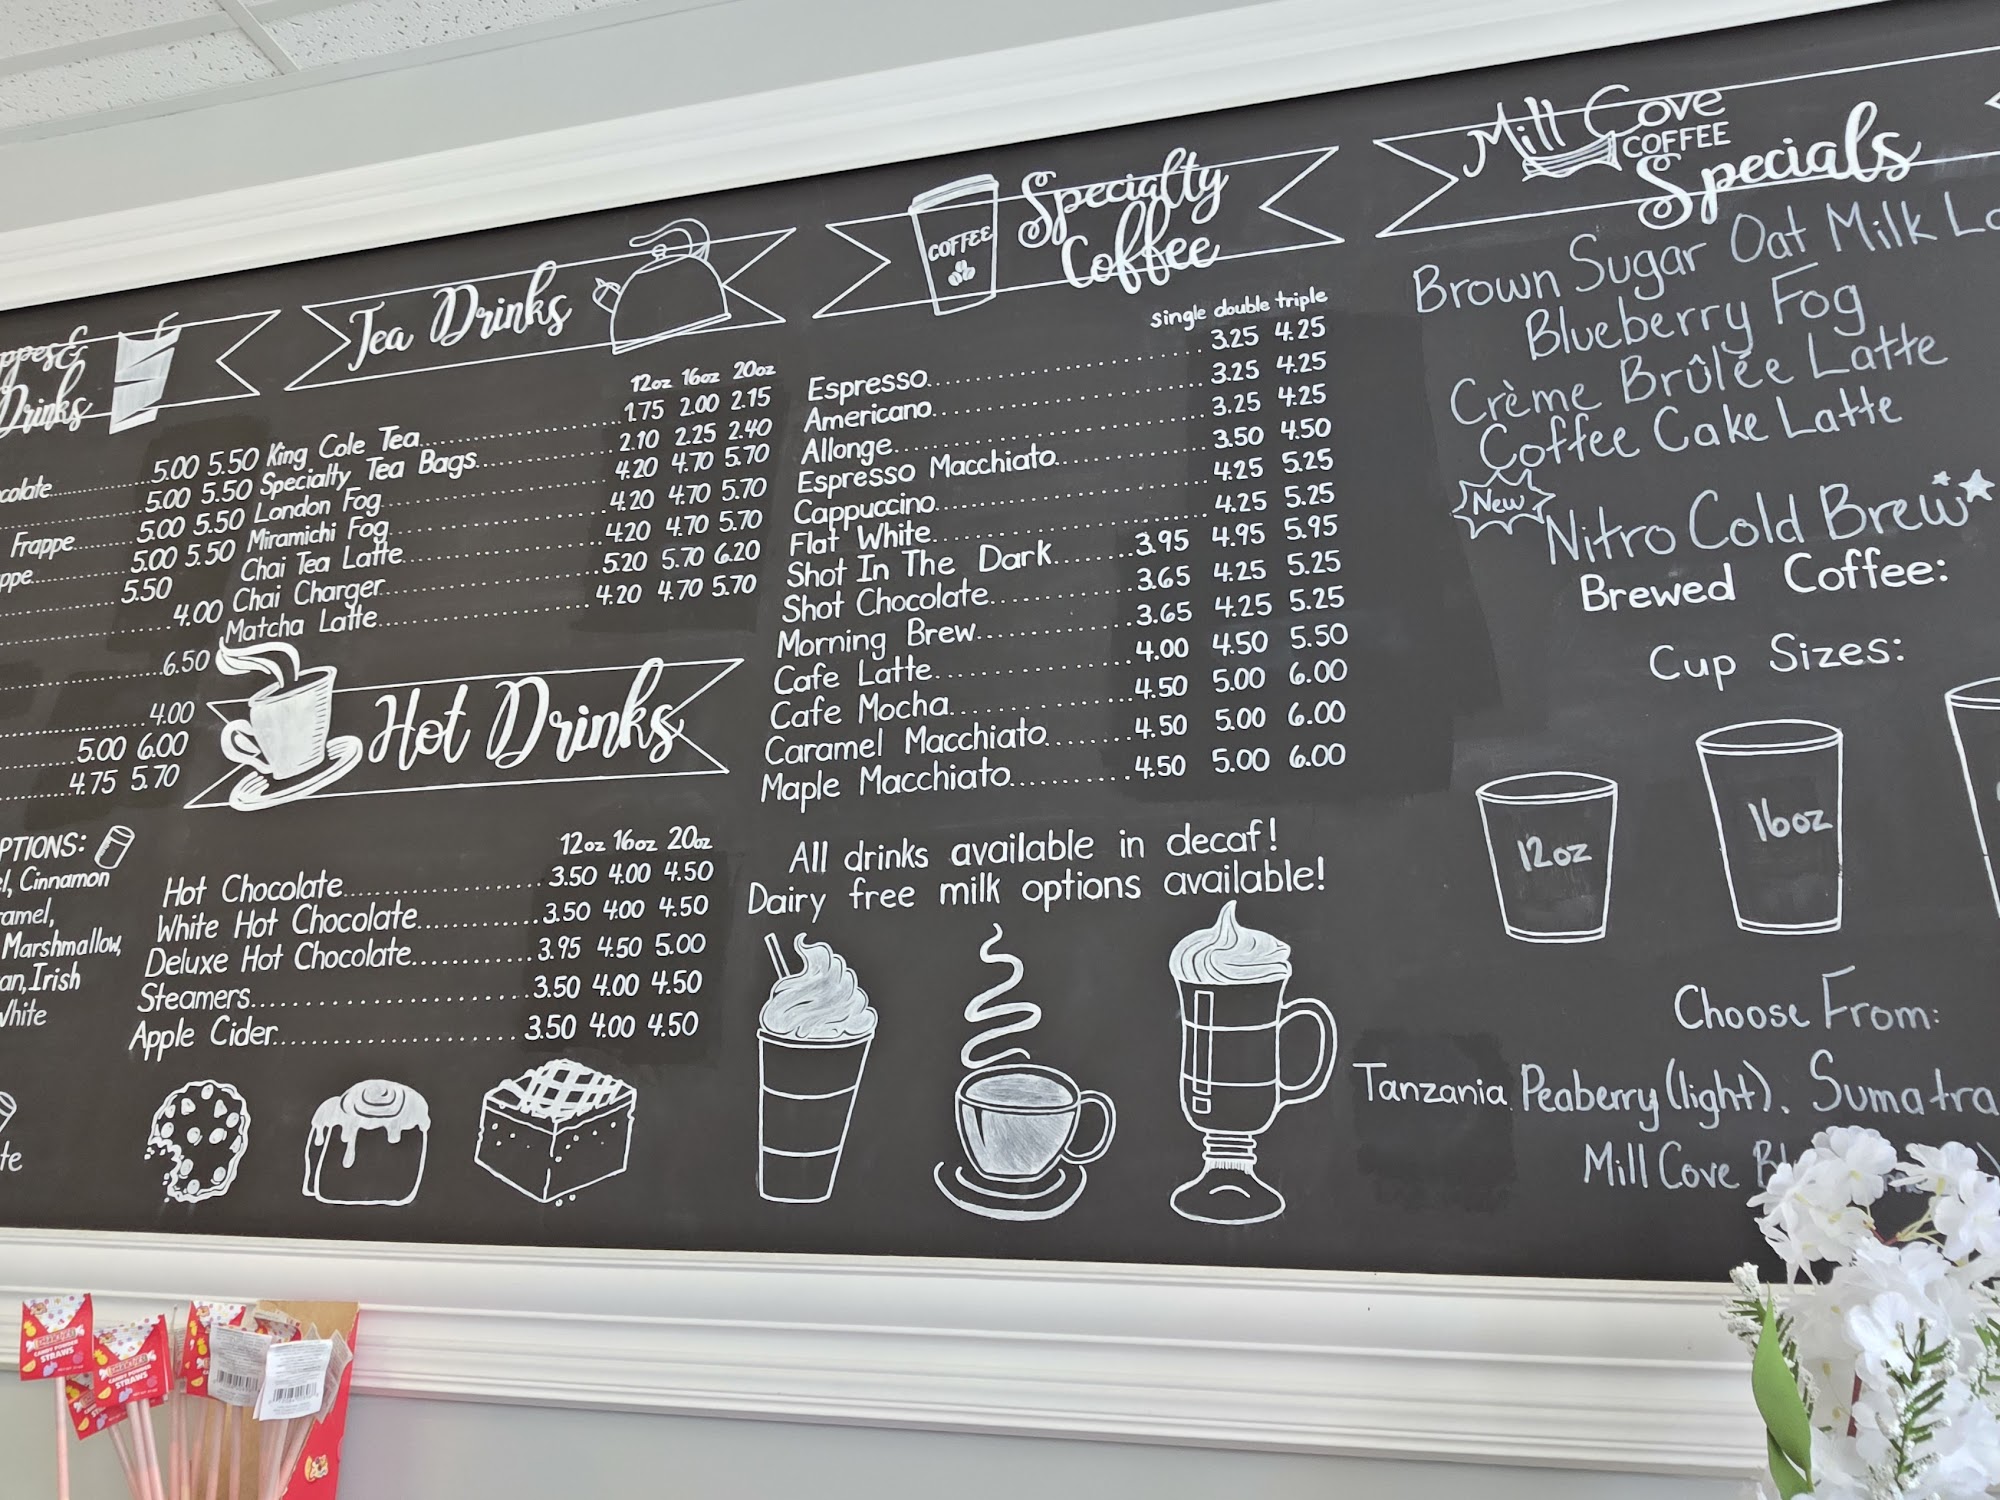 Drinks
colate 5.00 5.50
5.00 5.50
Frappe 5.00 5.50
ppe 5.00 5.50
5.50
4.00
6.50
4.00
5.00 6.00
4.75 5.70
PTIONS:
Cinnamon
amel,
Marshmallow,
an, Irish
White
te
Tea Drinks
12oz 16oz 20oz
King Cole Tea 1.75 2.00 2.15
Specialty Tea Bags 2.10 2.25 2.40
London Fog 4.20 4.70 5.70
Miramichi Fog 4.20 4.70 5.70
Chai Tea Latte 4.20 4.70 5.70
Chai Charger 5.20 5.70 6.20
Matcha Latte 4.20 4.70 5.70
Hot Drinks
12oz 16oz 20oz
Hot Chocolate 3.50 4.00 4.50
White Hot Chocolate 3.50 4.00 4.50
Deluxe Hot Chocolate 3.95 4.50 5.00
Steamers 3.50 4.00 4.50
Apple Cider 3.50 4.00 4.50
COFFEE
Specialty
Coffee
single double triple
Espresso 3.25 4.25
Americano 3.25 4.25
Allonge 3.25 4.25
Espresso Macchiato 3.50 4.50
Cappuccino 4.25 5.25
Flat White 4.25 5.25
Shot In The Dark 3.95 4.95 5.95
Shot Chocolate 3.65 4.25 5.25
Morning Brew 3.65 4.25 5.25
Cafe Latte 4.00 4.50 5.50
Cafe Mocha 4.50 5.00 6.00
Caramel Macchiato 4.50 5.00 6.00
Maple Macchiato 4.50 5.00 6.00
All drinks available in decaf!
Dairy free milk options available!
Mill Cove
COFFEE
Specials
Brown Sugar Oat Milk La
Blueberry Fog
Crème Brûlée Latte
Coffee Cake Latte
New
Nitro Cold Brew
Brewed Coffee:
Cup Sizes:
12oz
16oz
Choose From:
Tanzania Peaberry (light), Sumatra
Mill Cove
CANDY POWDER
STRAWS
CANDY POWDER
STRAWS